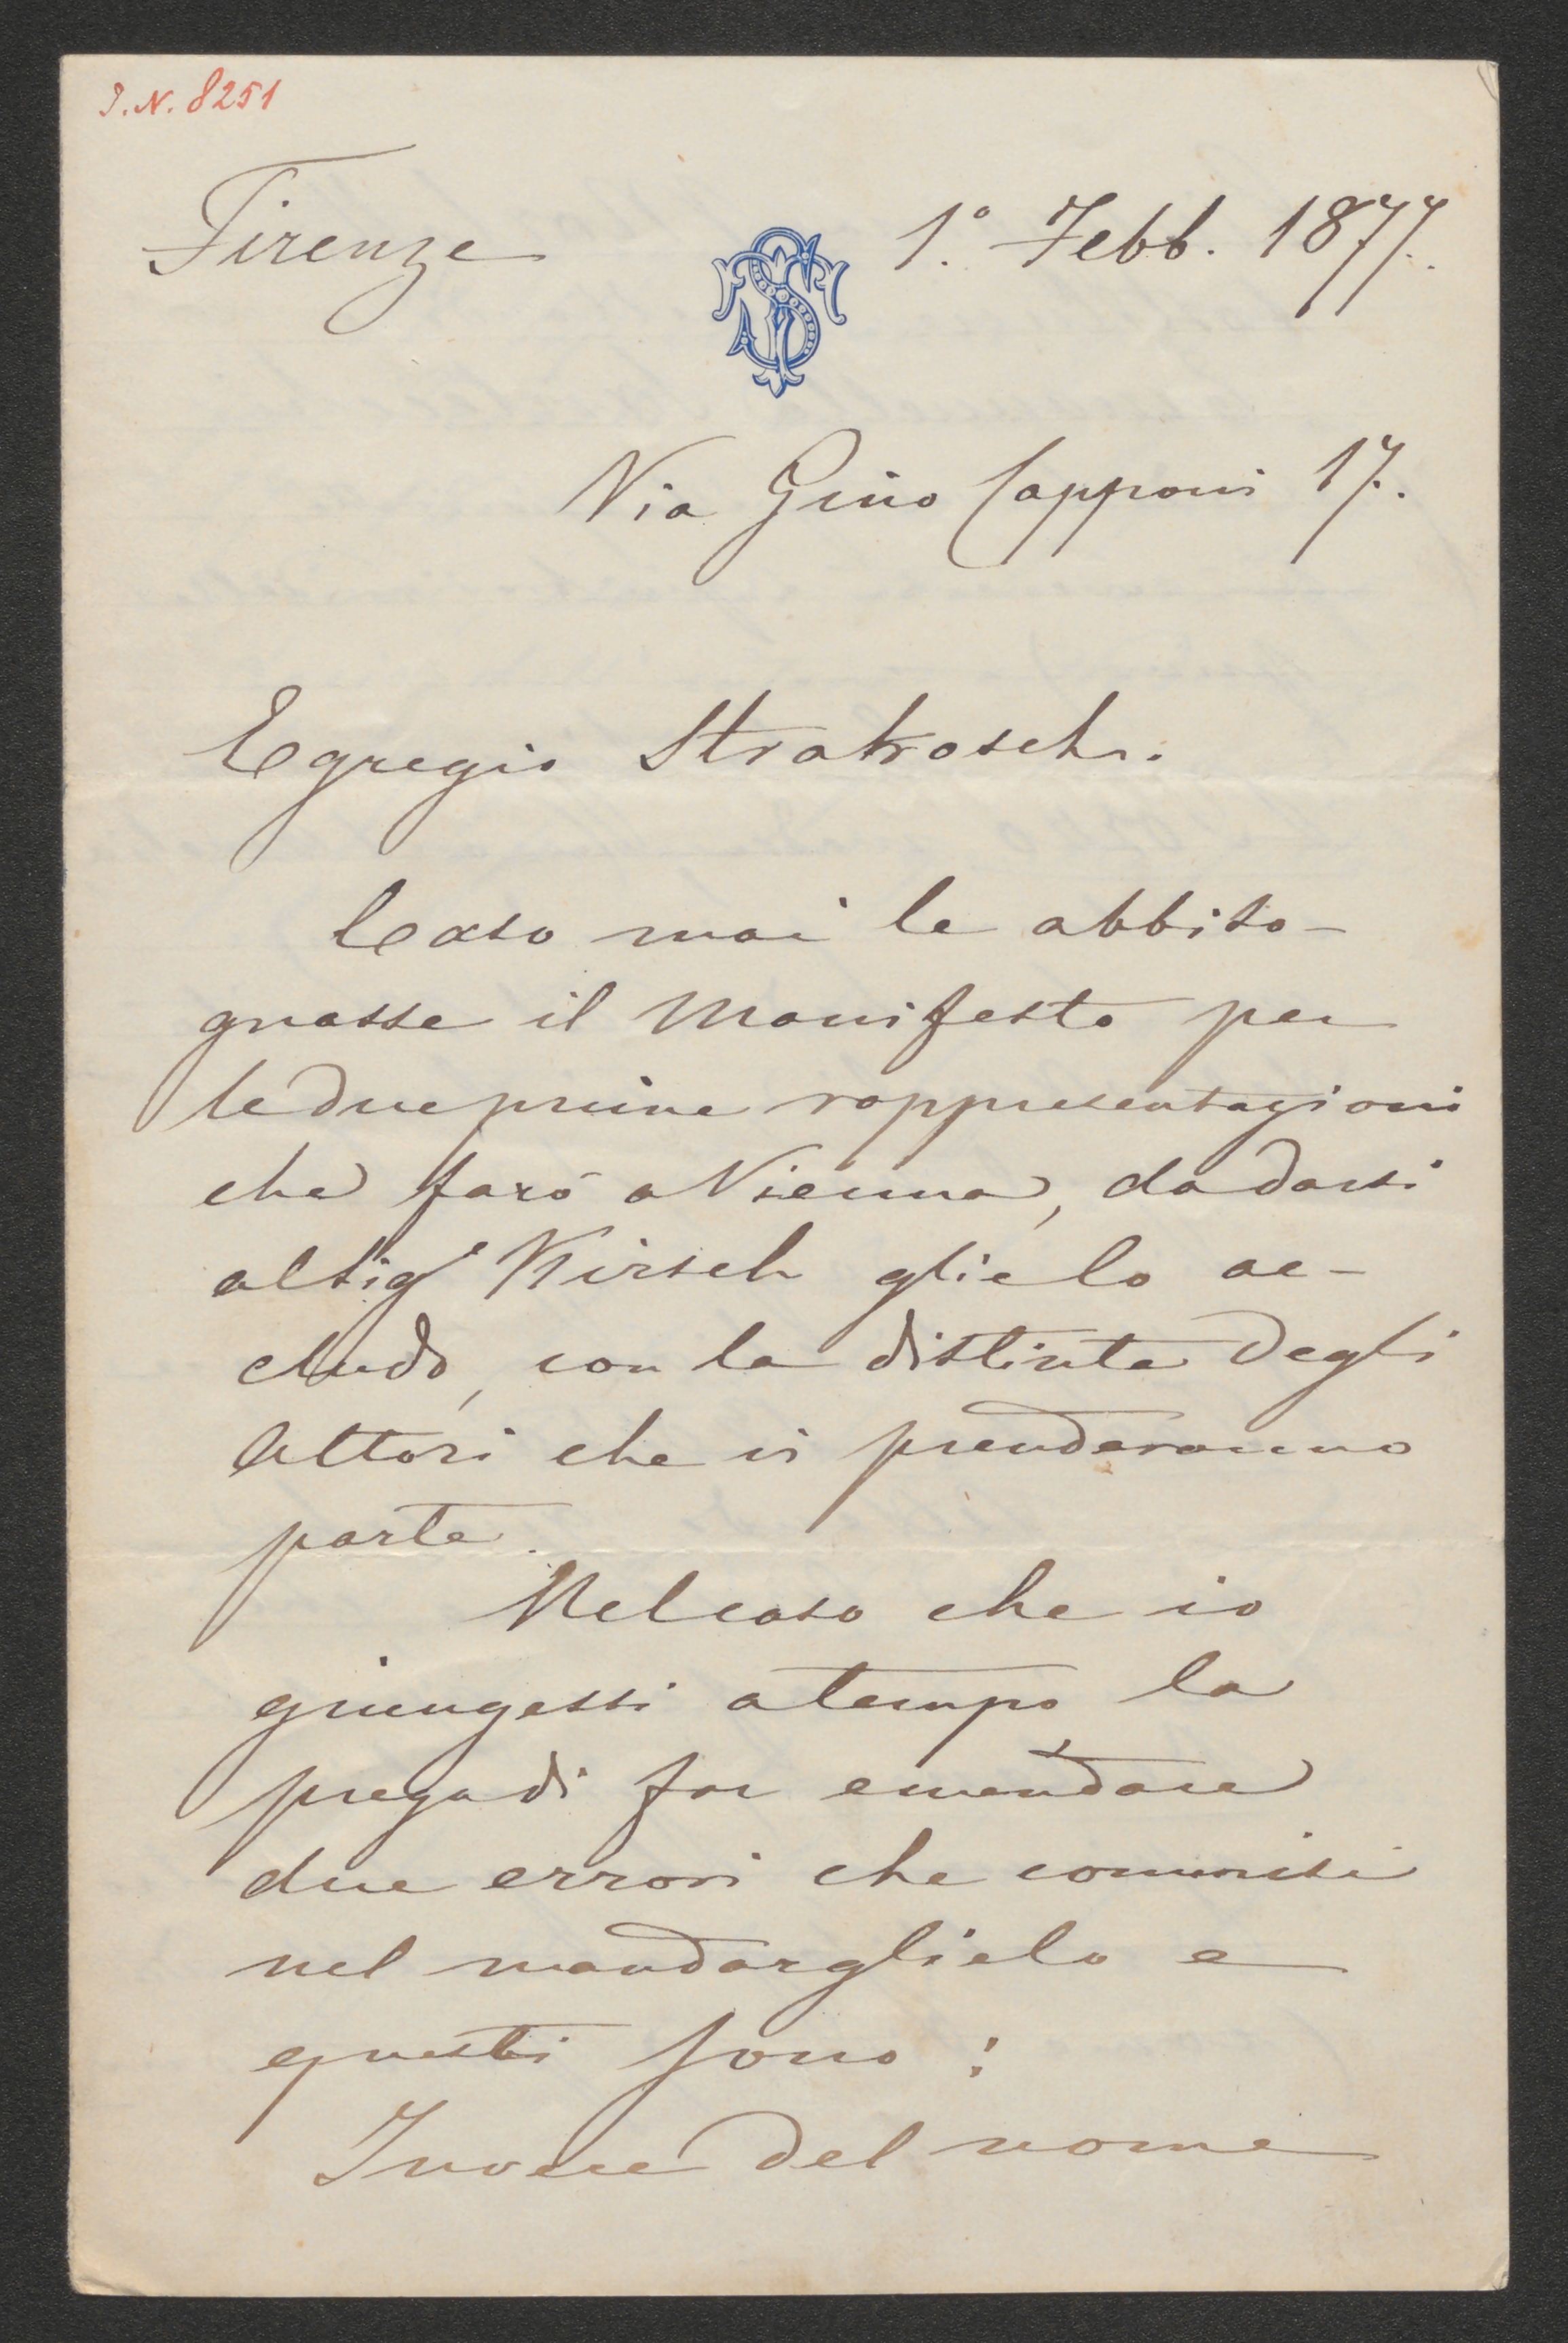 I. N. 8251
Firenze 1.° Febb. 1877.
Via Gino Capponi 17.
Egregio Strakosch.
Caso mai le abbiso-
gnasse il Manifesto per
le due prime rappresentazioni
che farò a Vienna, da darsi
al Sig.e Kirsch glielo ac-
cludo, con la distinta degli
Attori che vi prenderanno
parte.
Nel caso che io
giungessi a tempo, la
prego di far emendare
due errori che commisi
nel mandarglielo e
questi sono:
Invece del nome